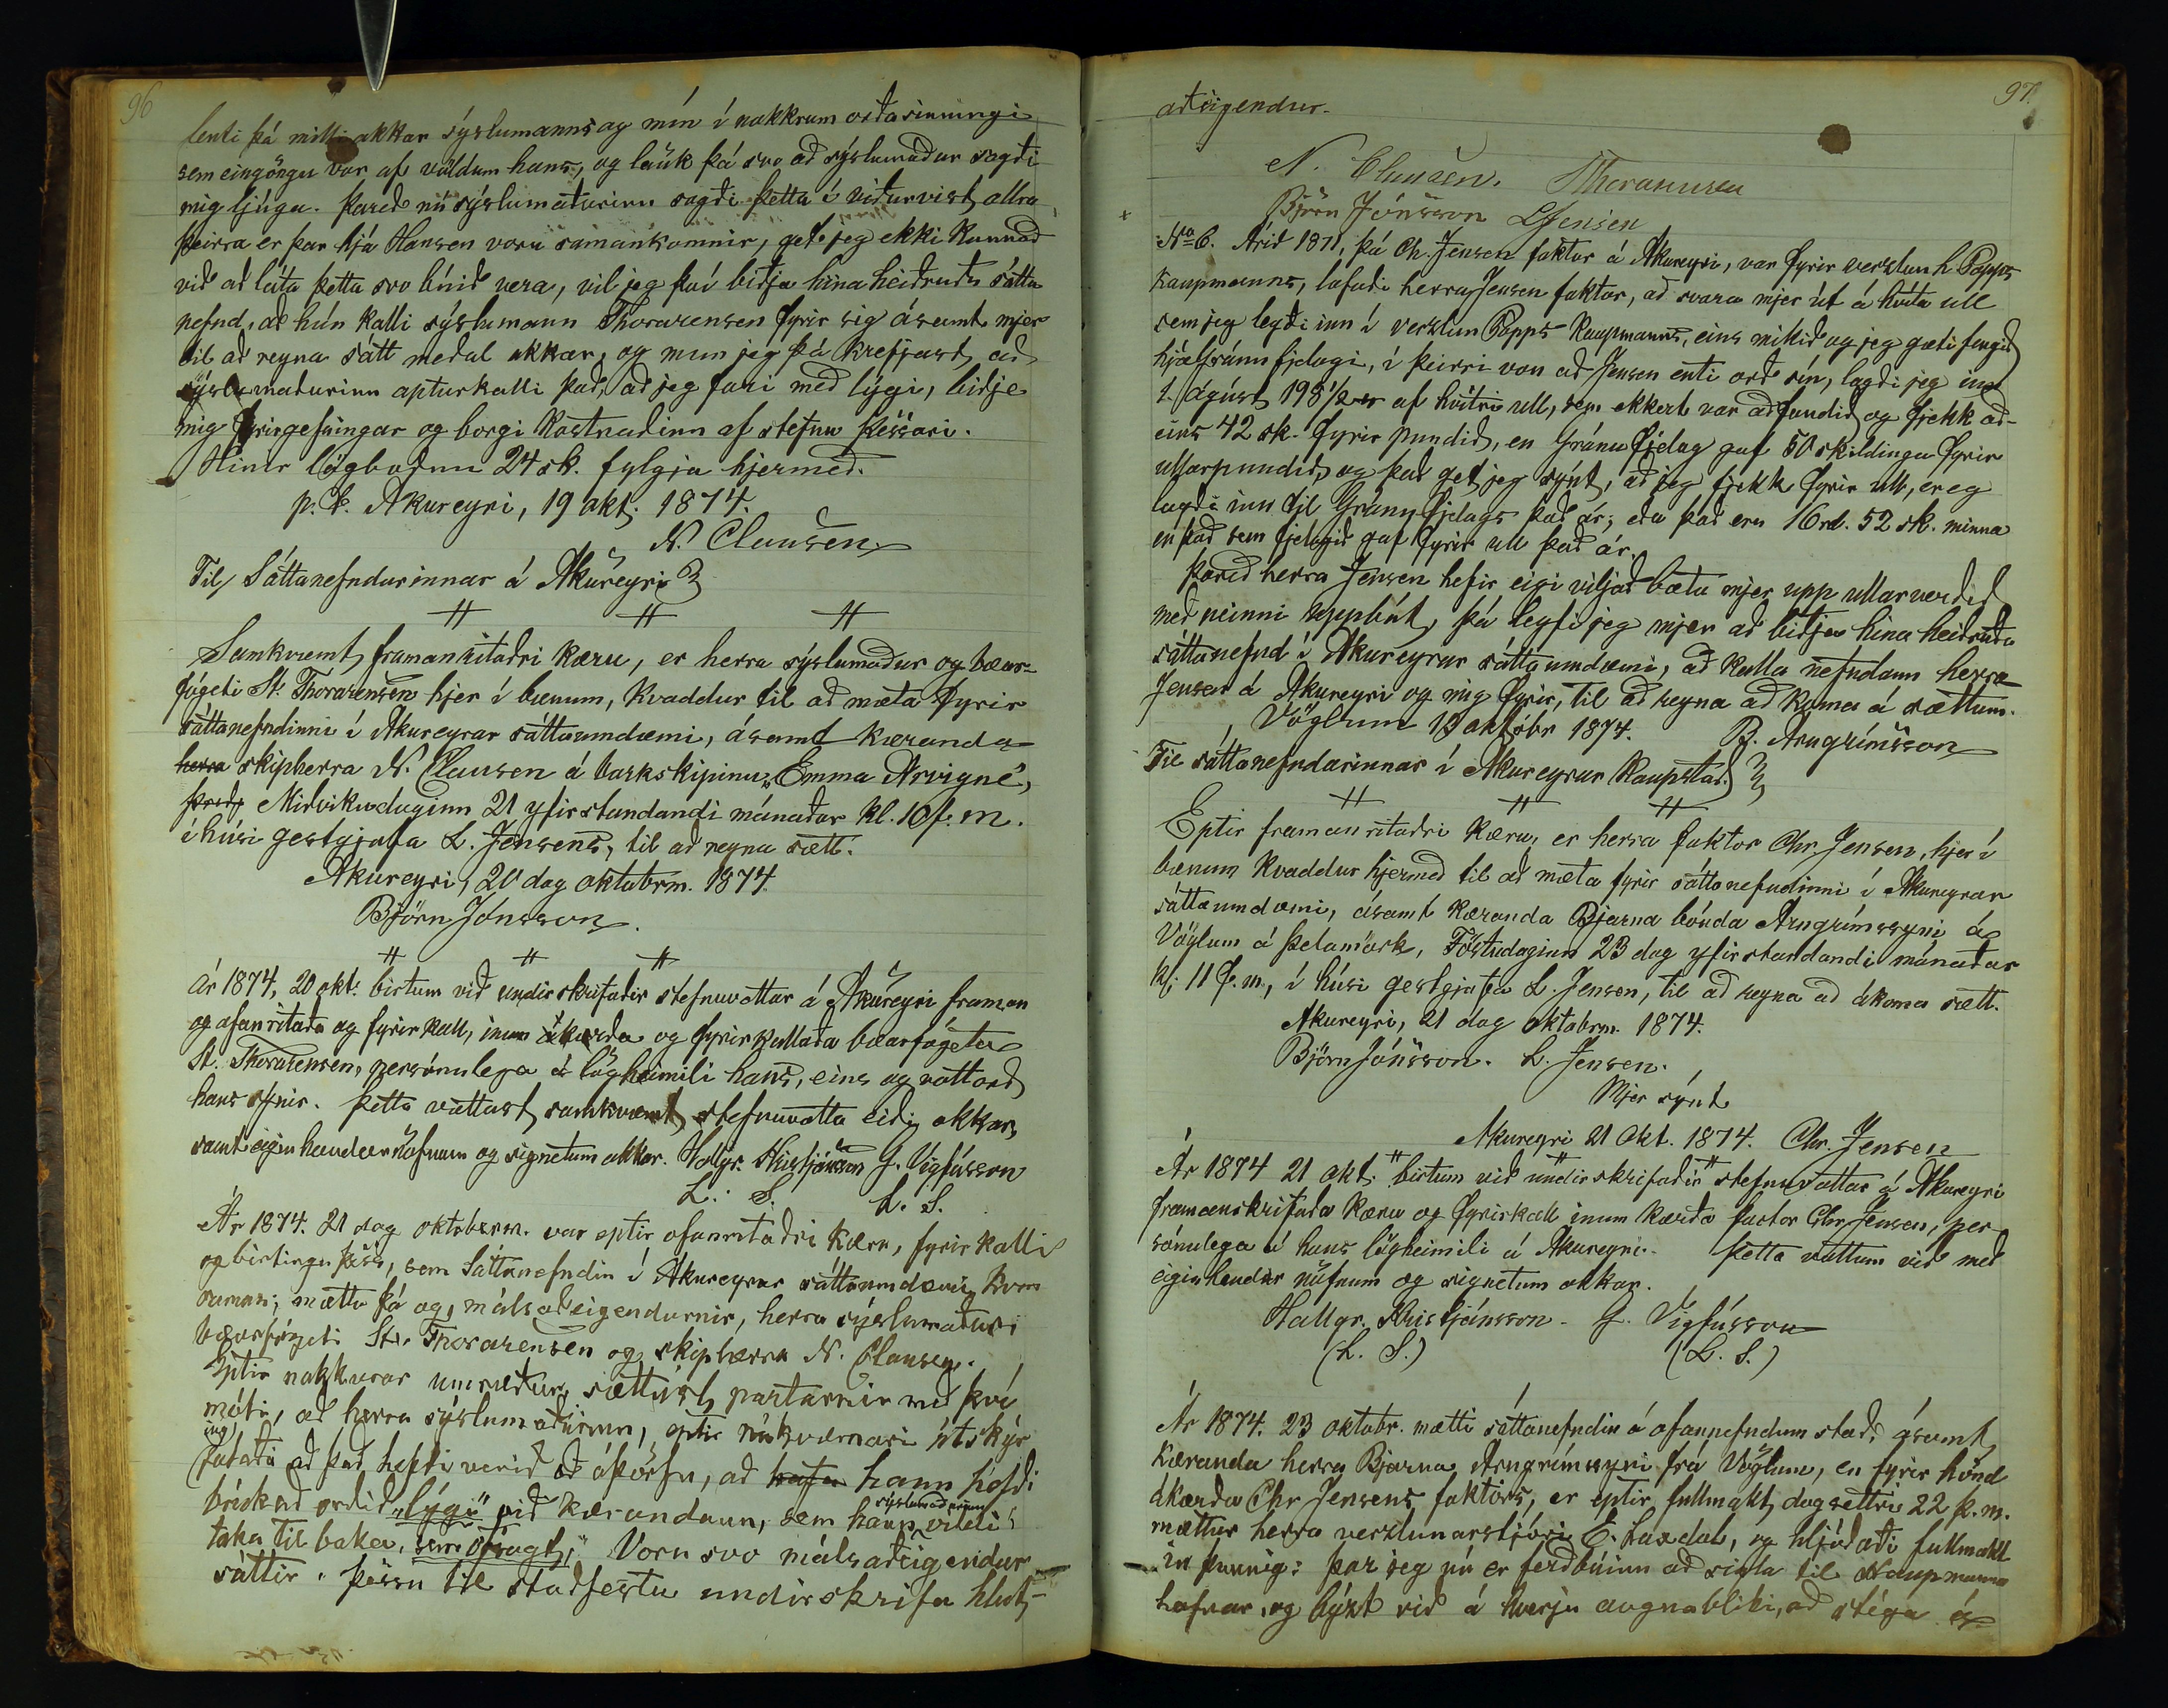 96
lenti þá milli okkar sýslumanns og mín í nokkrum orðasinningi
sem eingöngu var af völdum hans, og lauk þá svo að sýslumaður sagði
mig ljúga. Þareð nú sýslumaðurinn sagði þetta í viðurvist allra
þeirra er þar hjá Hansen voru samankomnir, get jeg ekki kunnað
við að láta þetta svo búið vera, vil jeg því biðja hina heiðruðu sátta
nefnd, að hún kalli sýslumann Thorarensen fyrir sig ásamt mjer
til að reyna sátt meðal okkar, og mun jeg þá krefjast, að
sýslumaðurinn apturkalli það, að jeg fari með lýgi, biðje
mig fyrirgefningar og borgi kostnaðinn af stefnu þessari.
Hinir lögboðnu 24 sk. fylgja hjermeð.
p. t. Akureyri, 19 okt. 1874.
N. Clausen
Til Sáttanefndarinnar á Akureyri
Samkvæmt framanritaðri kæru, er herra sýslumaður og bæar-
fógeti St. Thorarensen hjer í bænum, kvaddur til að mæta fyrir
sáttanefndinni í Akureyrar sáttaumdæmi, ásamt kæranda
herra skipherra N. Clausen á barkskipinu "Emma Arvigné",
Miðvikudaginn 21 yfirstandandi mánaðar kl. 10 f. m.
í húsi gestgjafa L. Jensens, til að reyna sætt.
Akureyri, 20 dag oktobrm. 1874.
Björn Jónsson.
Ár 1874, 20 okt. birtum við undirskrifaðir stefnuvottar á Akureyri framan
og ofanritaða og fyrirkall, inum ákærða og fyrirkallaða bæarfógeta
St. Thorarensen, persónulega á lögheimili hans, eins og vottorð
hans sýnir. Þetta vottast samkvæmt stefnuvotta eiði okkar,
samt eiginhandarnöfnum og signetum okkar. Hallgr. Kristjánsson G. Vigfússon
L. S. L. S.
Ár 1874. 21 dag oktobrm. var eptir ofanritaðri kæru, fyrirkalli
og birtingu þess, sem Sáttanefndin í Akureyrar sáttaumdæmi kom
saman; mættu þá og málsaðeigendurnir, herra sýslumaður
bæarfógeti St. Thorarensen og skipherra N. Clausen.
Eptir nokkurar umræður, sættust partarnir með því
móti, að herra sýslumaðurinn, eptir nákvæmari útskýr
ing
játaði að það hefði verið að óþörfu, að hafa hann hefði
brúkað orðið "lýgi" við kærandann, sem hann sýslumaðurinn vildi
taka til baka, sem ósagt. Voru svo málsaðeigendur
sáttir. Þessu til staðfestu undirskrifa hlut-
97.
aðeigendur.
N. Clausen. SThorarensen
Björn Jónsson LJensen
No 6. Árið 1871, þá Ch. Jensen faktor á Akureyri, var fyrir verzlun h Popps
kaupmanns, lofaði herra Jensen faktor, að svara mjer út á hvíta ull
sem jeg legði inn í verzlun Popps kaupmanns, eins mikið og jeg gæti fengið
hjá Gránufjelagi, í þeirri von að Jensen enti orð sín, lagði jeg inn
1. ágúst 198 1/2 af hvítri ull, sem ekkert var að fundið og fjekk að-
eins 42 sk. fyrir pundið, en Gránufjelag gaf 50 skildinga fyrir
ullarpundið, og það get jeg sýnt, að jeg fjekk fyrir ull, er eg
lagði inn til Gránufjelags það ár; eða það eru 16rd. 52 sk. minna
en það sem fjelagið gaf fyrir ull það ár.
Þareð herra Jensen hefir eigi viljað bæta mjer upp ullarverðið
með neinni uppbót, þá leyfi jeg mjer að biðja hina heiðruðu
sáttanefnd í Akureyrar sáttaumdæmi, að kalla nefndann herra
Jensen á Akureyri og mig fyrir, til að reyna að koma á sættum.
Vöglum 19 októbr 1874. B. Arngrímsson
Til sáttanefndarinnar í Akureyrar kaupstað.
Eptir framanritaðri kæru, er herra faktor Chr. Jensen, hjer í
bænum kvaddur hjermeð til að mæta fyrir sáttanefndinni í Akureyrar
sáttaumdæmi, ásamt kæranda Bjarna bónda Arngrímssyni á
Vöglum á þelamörk, Föstudaginn 23 dag yfirstandandi mánaðar
kl. 11 f. m., í húsi gestgjafa L. Jensen, til að reyna að ákoma sætt.
Akureyri, 21 dag oktobrm. 1874.
Björn Jónsson. L. Jensen.
Mjer sýnt
Akureyri 21 Okt. 1874. Chr. Jensen
Ár 1874 21 okt. birtum við undirskrifaðir stefnuvottar á Akureyri
framanskrifaða kæru og fyrirkall inum kærða factor Chr Jensen, per
sónulega á hans lögheimili á Akureyri. Þetta vottum við með
eiginhandar nöfnum og signetum okkar.
Hallgr. Kristjánsson. G. Vigfússon
(L. S.) (L. S.)
Ár 1874. 23 oktobr. mætti sáttanefndin á ofannefndum stað, ásamt
kæranda herra Bjarna Arngrímssyni frá Vöglum, en fyrir hönd
ákærða Chr Jensens faktors, er eptir fullmakt dagsettri 22 þ. m.
mættur herra verzlunarstjóri E. Laxdal, og hljóðaði fullmakt
in þannig: þar jeg nú er ferðbúinn að sigla til Kaupmanna
hafnar, og býzt við á hverju augnabliki, að stíga á